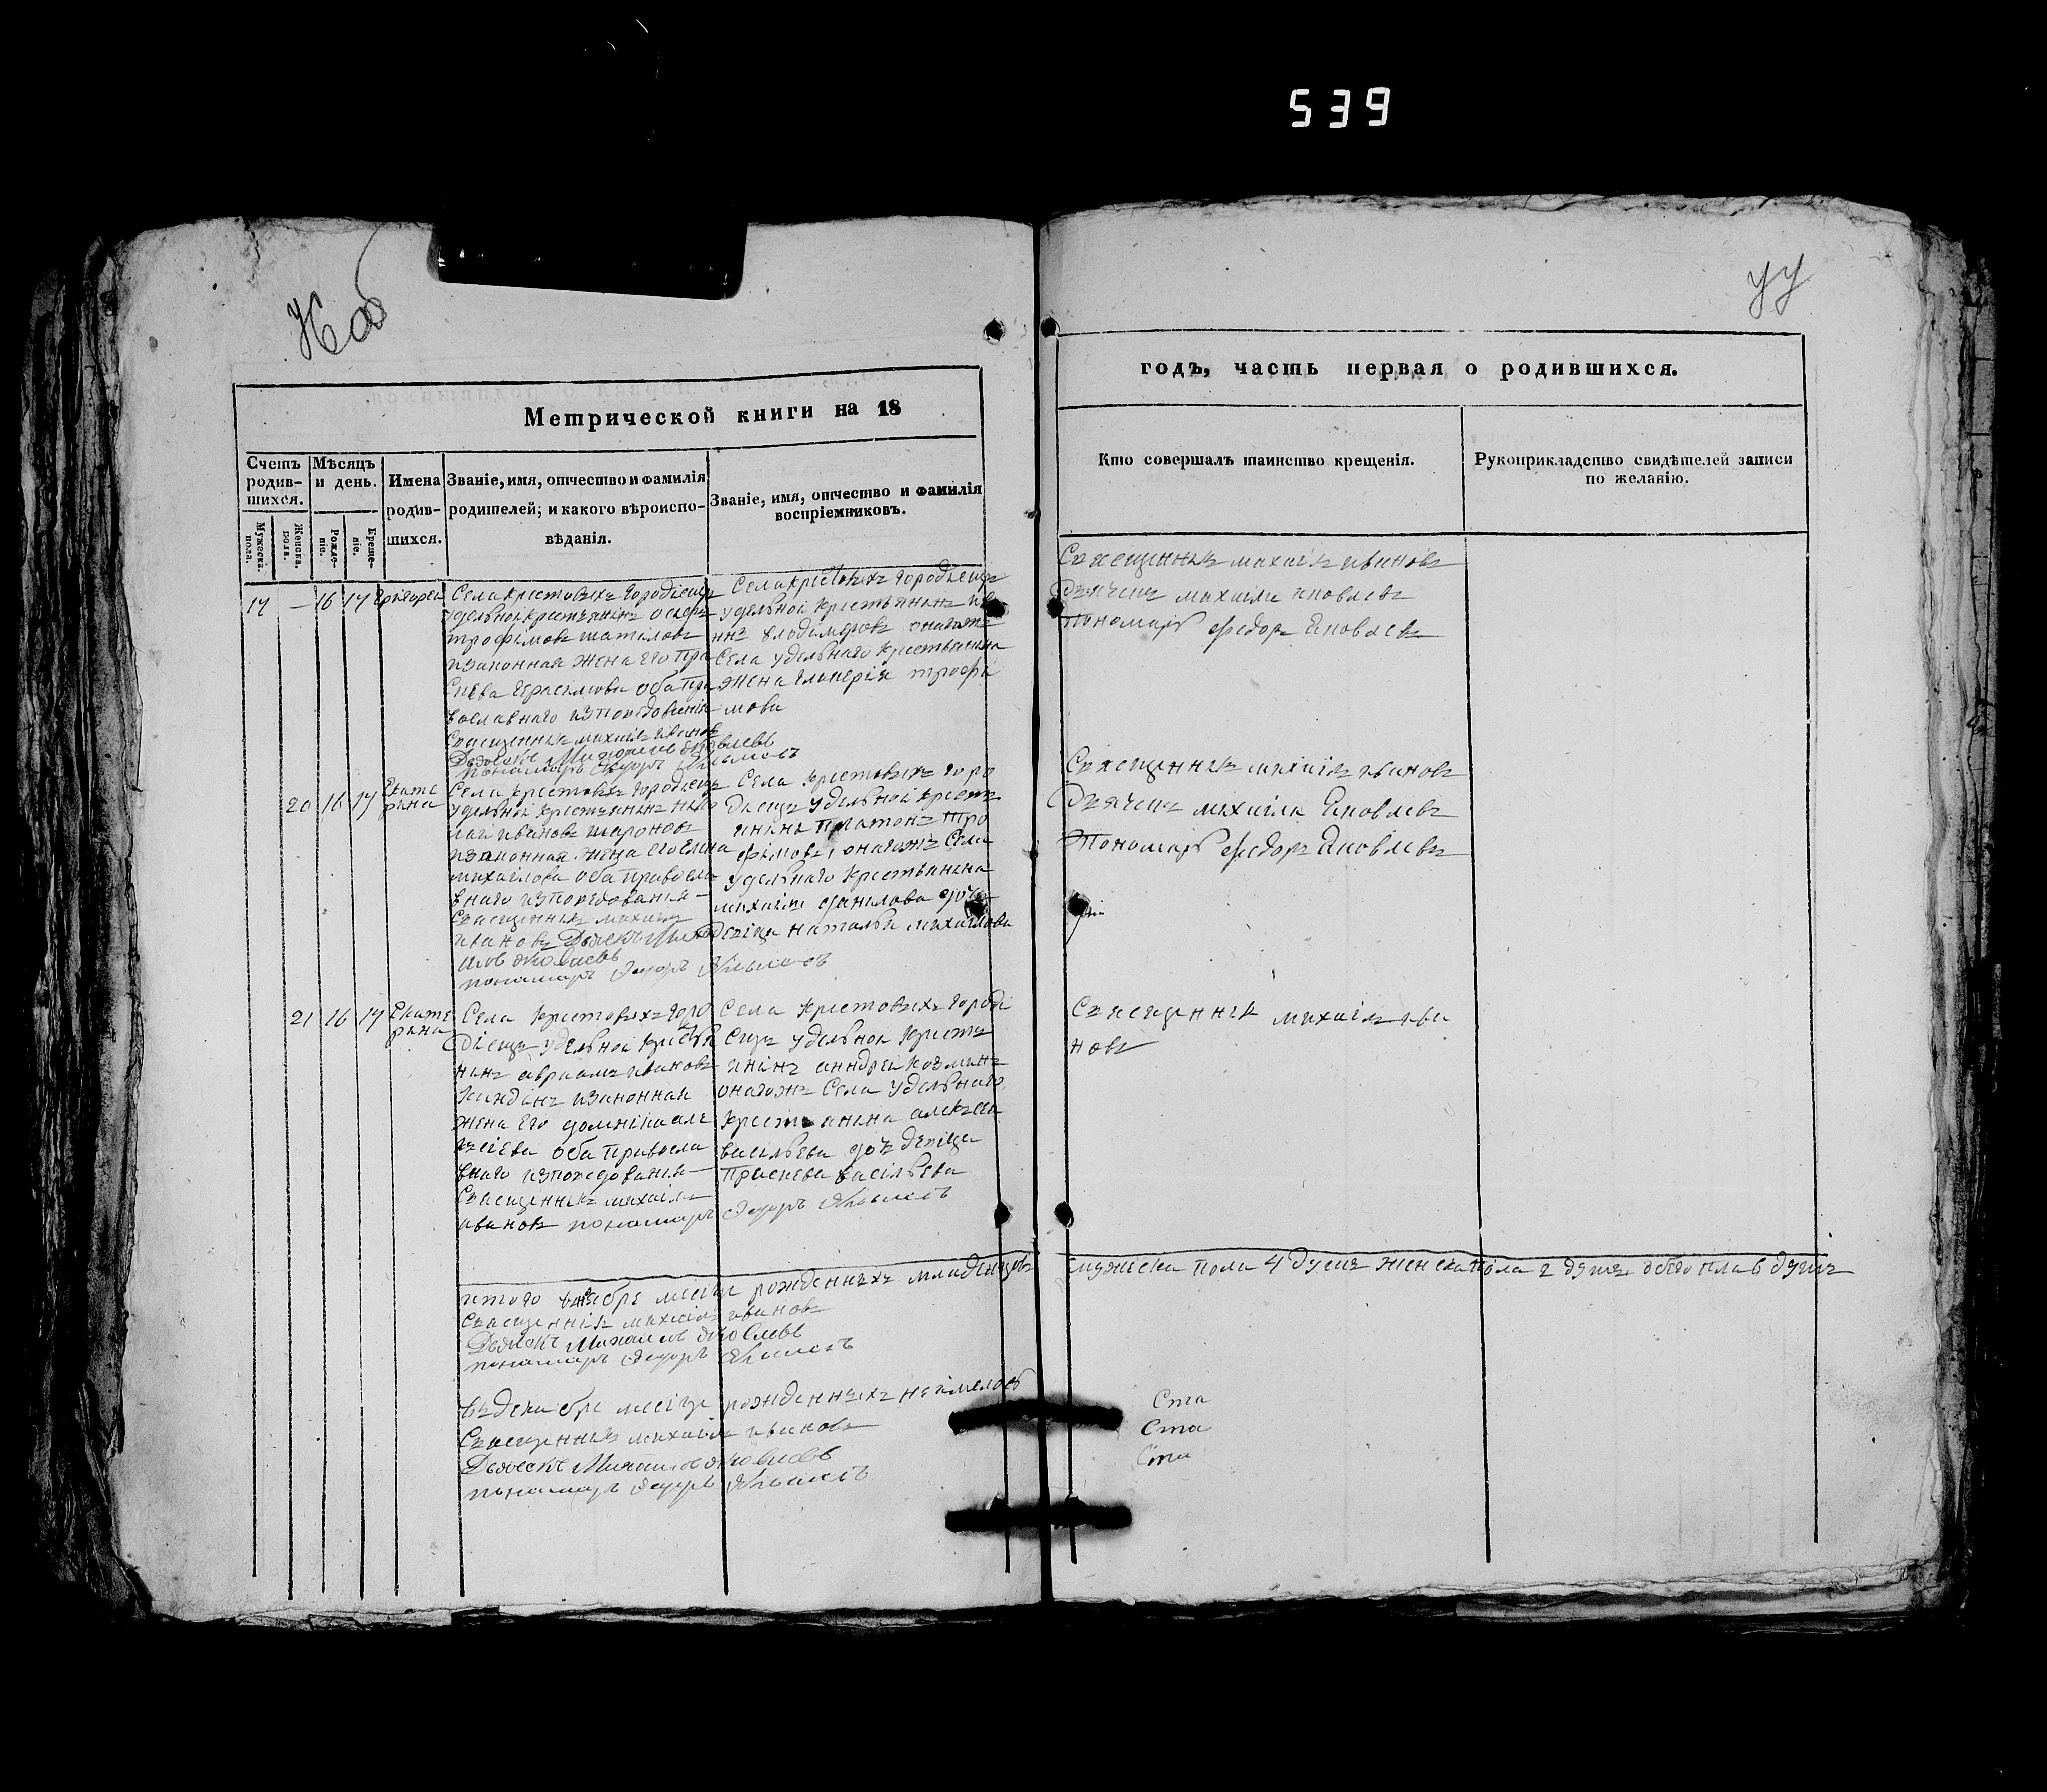 539
уу
Метрической книги на 18
годъ, часть первая о родившихся.
Счетъ родив-шихся.
Мѣсяцъ и день.
Имена родив-шихся.
Званіе, имя, отчество и фамилія родителей, и какого вѣроиспо-вѣданія.
Званіе, имя, отчество и фамилія воспріемниковъ.
Кто совершалъ таинство крещенія.
Рукоприкладство свидѣтелей записи по желанію.
Мужеска. пола.
Женска. пола.
Рожде-ніе.
Креще-ніе.
17 — 16 17 Григореи
Села крестовыхъ городісщъ
удельной крестьянинъ
трофимовъ шаталовъ
изаконная жена его пра
Скева Герасімова оба пра
вославнаго изповедования
Священникъ михаилъ ивановъ
Дьячекъ Михаилъ яковлевъ
пономарь Федоръ
Села крестовыхъ городісщъ
удельной крестьянинъ ива
нъ влодимеровъ онагожъ
Села удельнаго крестьянина
жена гликерія трофи
мова
Священникъ михаилъ ивановъ
Дьячекъ михаила яковлевъ
Пономарь федоръ Яковлевъ
20 16 17 Екате
рина
Села крестовыхъ городісщъ
удельной крестьянинъ нико
лай ивановъ шароновъ
изаконная жена его елена
михаілова оба правосла
внаго изповедования
Священникъ михаилъ
ивановъ Дьячекъ Миха
илъ яковлевъ
пономарь Федоръ
Села крестовыхъ горо
дисщъ удельной крестъ
янинъ платонъ тро
фимовъ, онагожъ Села
удельнаго крестьянина
михаилы данилова дочь
девица наталья михаилова
Священникъ михаилъ ивановъ
Дьячекъ михаила Яковлевъ
Пономарь федоръ Яковлевъ
21 16 17 Екате
рина
Села крестовыхъ горо
дісщъ удельной крестья
нинъ авраамъ ивановъ
изаконная
жена его домника але
ксіева оба правосла
внаго изповедования
Священникъ михаилъ
ивановъ пономарь Федоръ
Села крестовыхъ городі
сщъ удельной крестъ
янинъ андреи козминъ
онагожъ Села удельнаго
крестьянина алексея
васильева дочь девіца
Праскева васільева
Священникъ михаилъ ива
новъ
итого въ ноебре месяце рожденныхъ младенцовъ мужеска пола 4 души женска пола 2 души обего пола 6 душъ
Священникъ михаилъ ивановъ
Дьячекъ Михаилъ яковлевъ
пономарь Федоръ
въ декабре месяце рожденныхъ неимелось
Священникъ михаилъ ивановъ
Дьячекъ Михаилъ яковлевъ
пономарь Федоръ
Ста
Ста
Ста